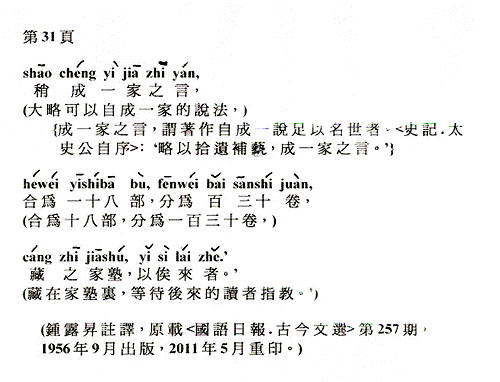 第31頁
shāo chéng yì jiā zhī yán,
稍 成 一 家 之 言，
(大略可以自成一家的說法，)
{成一家之言，謂著作自成一說足以名世者。<史記．太
史公自序>：‘略以拾遺補藝，成一家之言。’}
héwéi yīshíbā bù, fēnwéi bǎi sānshí juàn,
合爲 一十八 部，分爲 百 三十 卷，
(合爲十八部，分爲一百三十卷，)
cáng zhī jiāshú, yǐ sì lái zhě.’
藏 之 家塾，以俟來者。’
(藏在家塾裏，等待後來的讀者指教。’)
(鍾露昇註譯，原載<國語日報．古今文選>第257期，
1956年9月出版，2011年5月重印。)